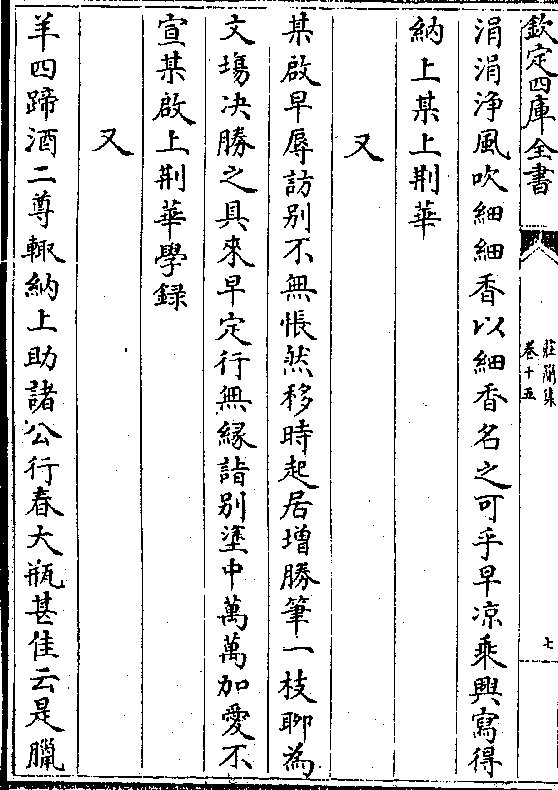 欽定四庫全書
莊簡集
卷十五
七
涓涓浄風吹細細香以細香名之可乎早凉乘興寫得
納上某上荆華
又
某啟早辱訪别不無悵然移時起居增勝筆一枝聊為
文塲决勝之具來早定行無緣詣别塗中萬萬加愛不
宣某啟上荆華學録
又
羊四蹄酒二尊輙納上助諸公行春大瓶甚佳云是臘